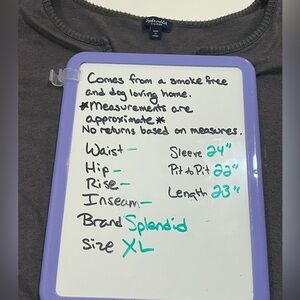 Splendid
Comes from a smoke free
and dog loving home.
*Measurements are
approximate*
No returns based on measures.
Waist -
Hip -
Rise -
Inseam -
Sleeve 24"
Pit to Pit 22"
Length 23"
Brand Splendid
Size XL